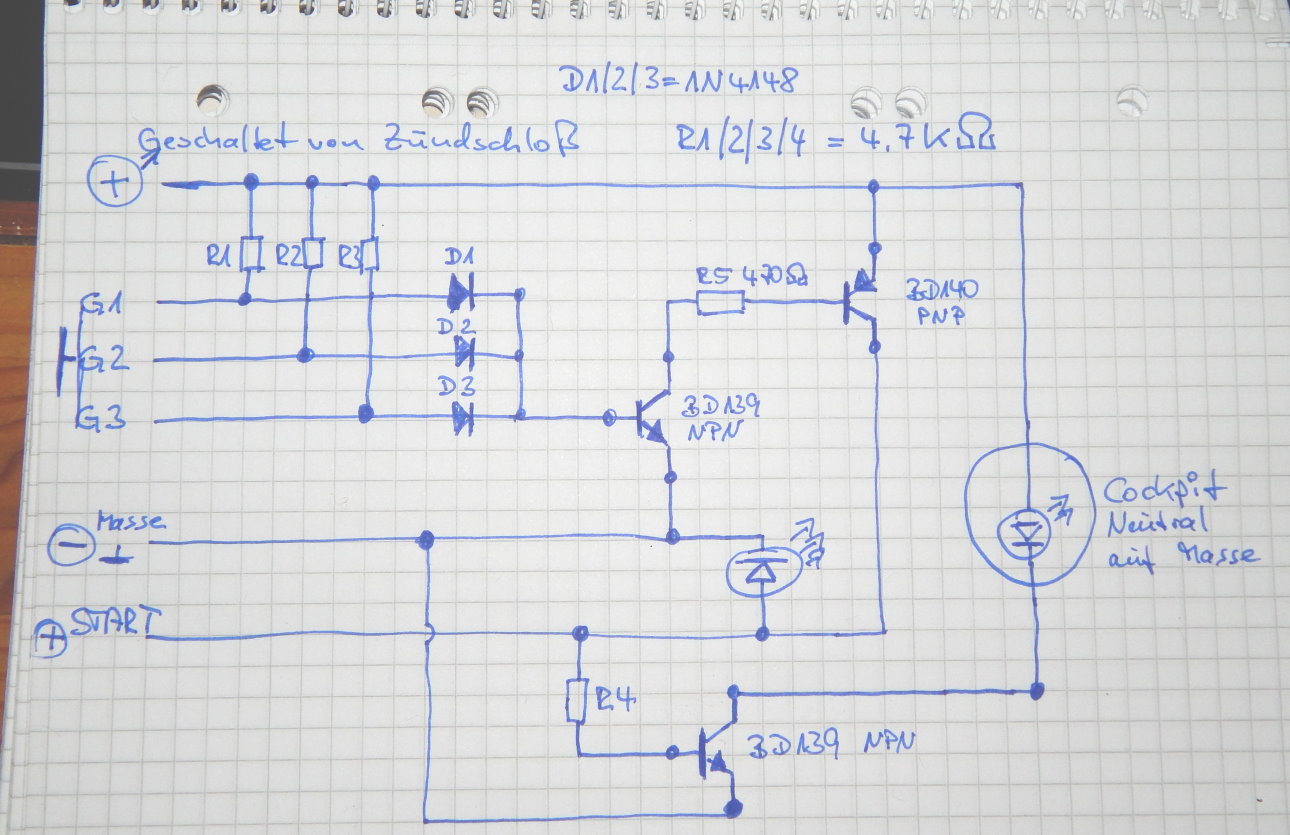 D1/2/3=1N4148
Geschaltet von Zündschloß
R1/2/3/4 = 4.7KΩ
+
R1 R2 R3 D1
R5 470Ω
BD140
PNP
G1
D2
G2
D3
G3
BD139
NPN
Masse
-
Cockpit
Neutral
auf Masse
+ START
R4
BD139 NPN